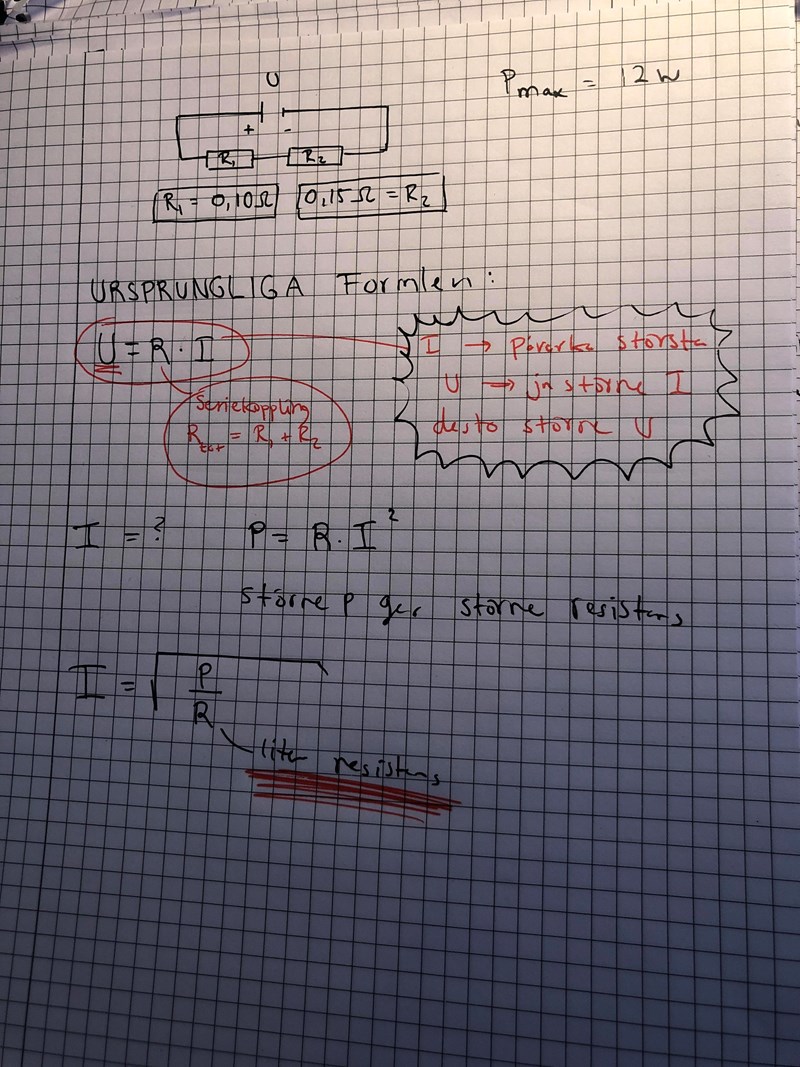 U
P max = 12 W
+ -
R₁ R₂
R₁ = 0,10 Ω 0,15 Ω = R₂
URSPRUNGLIGA Formlen:
U = R · I
I → Påverka största
U → ju större I
desto större U
Seriekoppling
R tot = R₁ + R₂
I = ? P = R · I²
större P ger större resistans
I = √ P
R
liten resistans